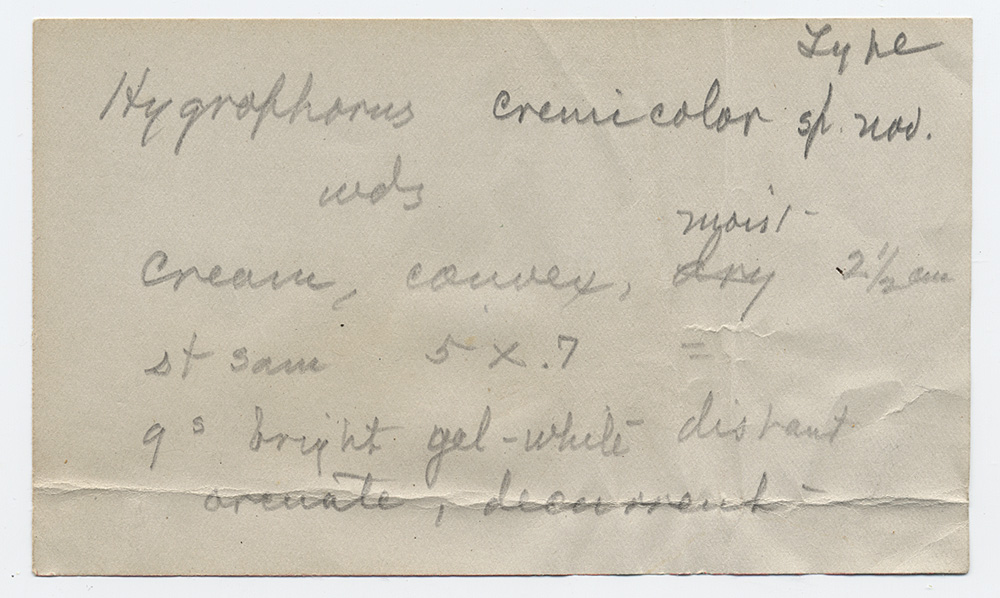 Type
Hygrophorus cremicolor sp. nov.
wds
moist
cream, convex, dry 2 1/2 cm
st sam 5 x .7 =
g s bright yel-white distant
arcuate, decurrent